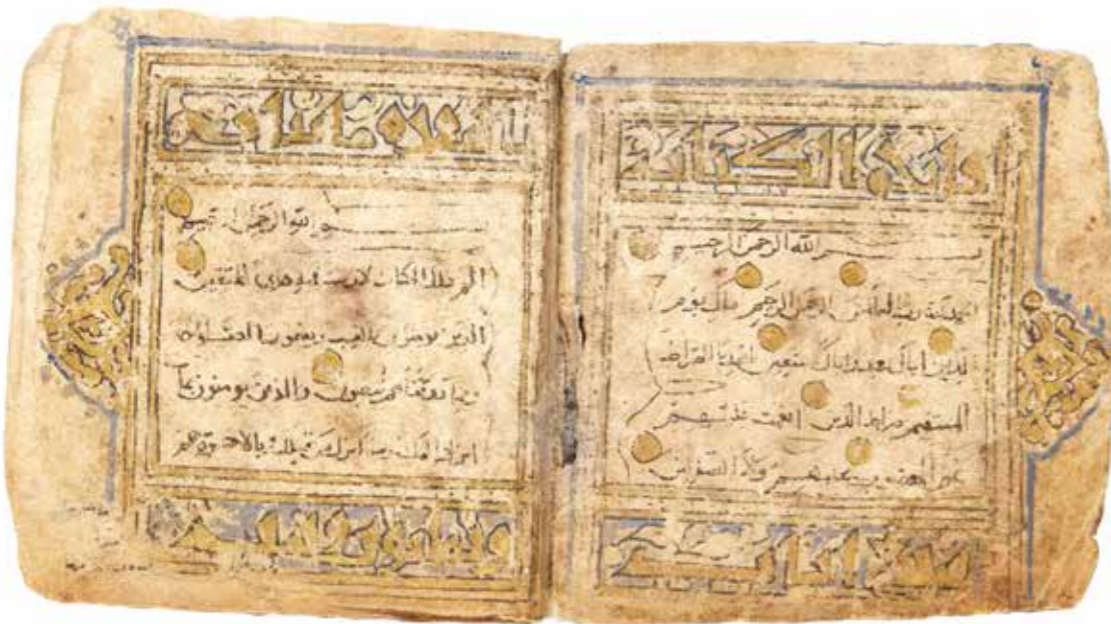 فاتحة الكتاب
بسم الله الرحمن الرحيم
الحمد لله رب العالمين الرحمن الرحيم ملك يوم
الدين اياك نعبد واياك نستعين اهدنا الصراط
المستقيم صراط الذين انعمت عليهم
غير المغضوب عليهم ولا الضالين
بسم الله الرحمن الرحيم
الم ذلك الكتاب لا ريب فيه هدى للمتقين
الذين يومنون بالغيب ويقيمون الصلوة
ومما رزقناهم ينفقون والذين يومنون بما
انزل اليك وما انزل من قبلك وبالاخرة هم